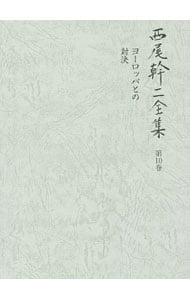 西尾幹二全集
第10巻
ヨーロッパとの
対決